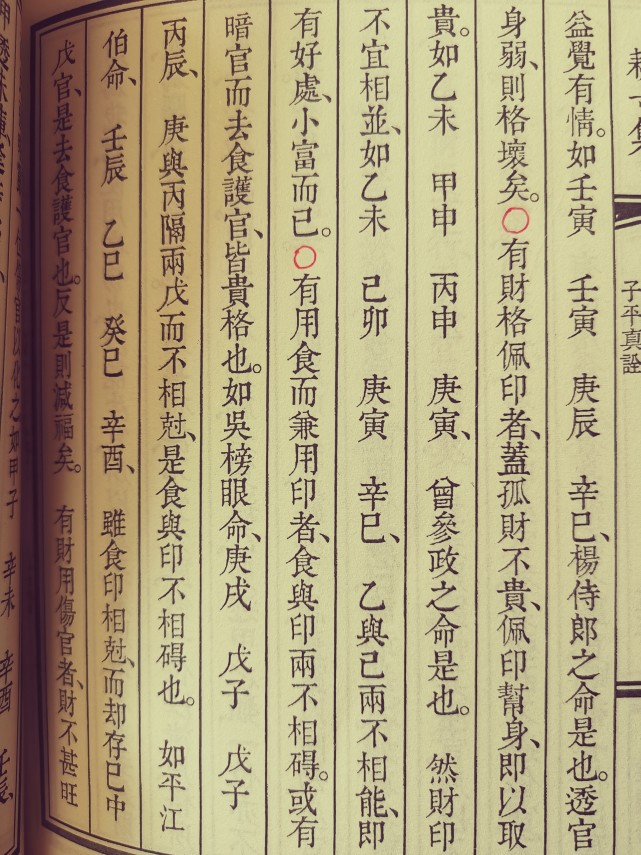 子平真詮
益覺有情。如壬寅　壬寅　庚辰　辛巳、楊侍郎之命是也。透官
身弱、則格壞矣。○有財格佩印者、蓋孤財不貴、佩印幫身、即以取
貴。如乙未　甲申　丙申　庚寅、　曾參政之命是也。　然財印
不宜相並、如乙未　己卯　庚寅　辛巳、　乙與己兩不相能、即
有好處、小富而已。○有用食而兼用印者、食與印兩不相碍。或有
暗官而去食護官、皆貴格也。如吳榜眼命、庚戌　戊子　戊子
丙辰、　庚與丙隔兩戊而不相尅、是食與印不相碍也。　如平江
伯命、　壬辰　乙巳　癸巳　辛酉、　雖食印相尅、而却存巳中
戊官、是去食護官也。反是則減福矣。　有財用傷官者、財不甚旺
之如甲子　辛未　辛酉　壬辰、